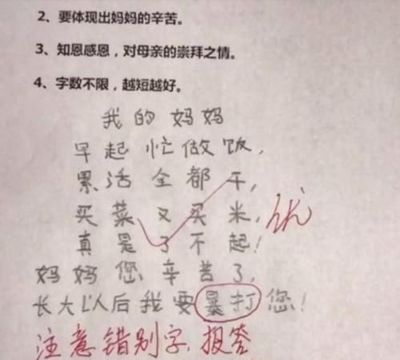 2、要体现出妈妈的辛苦。
3、知恩感恩，对母亲的崇拜之情。
4、字数不限，越短越好。
我的妈妈
早起忙做饭，
累活全都干，
买菜又买米，优
真是了不起！
妈妈您辛苦了，
长大以后我要暴打您！
注意错别字.报答